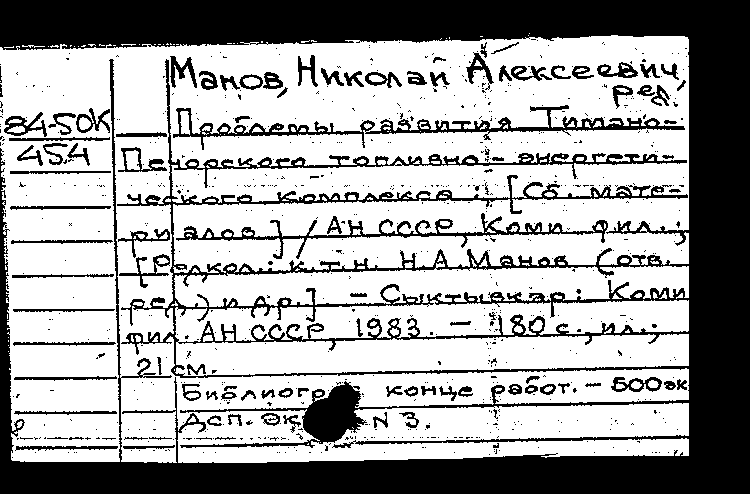 Манов, Николай Алексеевич,
ред.
84-50К Проблемы развития Тимано-
454 Печорского топливно-энергети-
ческого комплекса: [Сб. мате-
риалов] / АН СССР, Коми фил.;
[Редкол.: к.т.н. Н.А.Манов (отв.
ред.) и др.] - Сыктывкар: Коми
фил. АН СССР, 1983. - 180 с., ил.;
21 см.
конце работ. - 500 эк
Дсп. N 3.